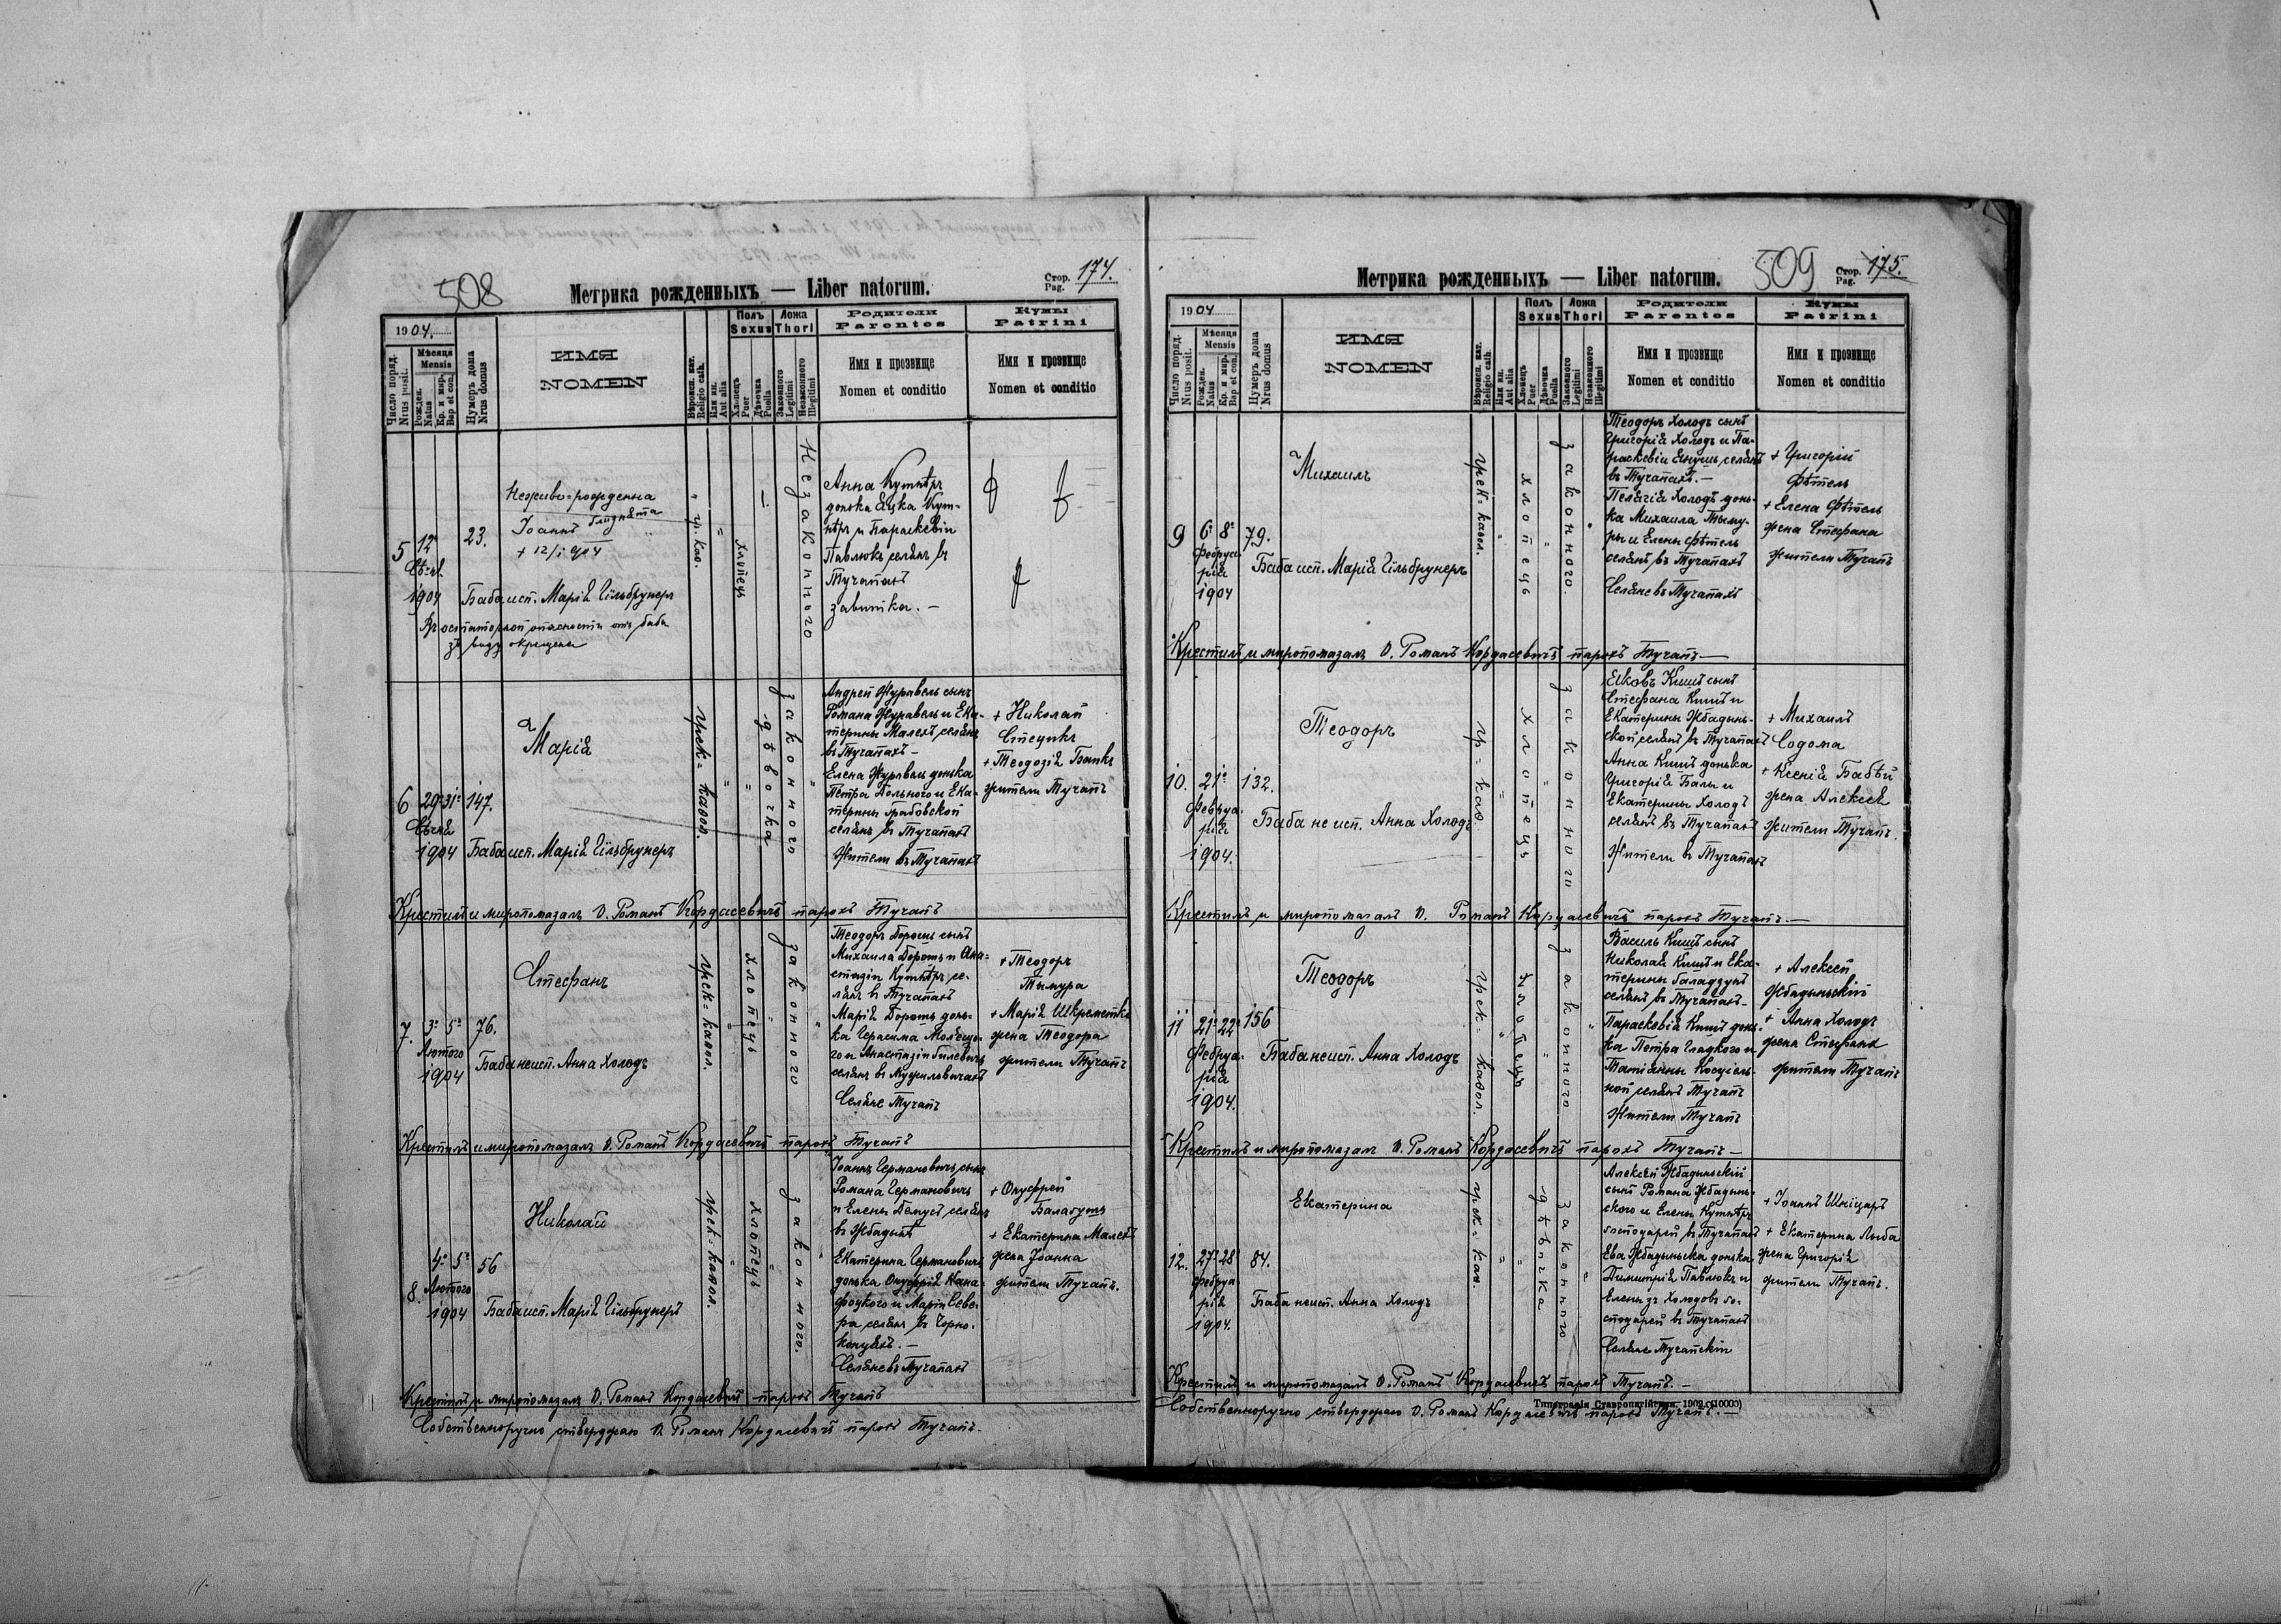 508
Метрика рожденныхъ — Liber natorum.
Стор. Pag. 174.
1904.
Число поряд. Nrus posit.
Мѣсяця Mensis
Рожден. Natus
Кр. и мир. Bap et con.
Нумеръ дома Nrus domus
ИМЯ
NOMEN
Вѣроисп. кат. Religio cath.
Или ин. Aut alia
Полъ Sexus
Хлопецъ Puer
Дѣвочка Puella
Ложа Thori
Законного Legitimi
Незаконного Illegitimi
Родители
Parentes
Имя и прозвище
Nomen et conditio
Кумы
Patrini
Имя и прозвище
Nomen et conditio
5
12
1904
23.
Неживо-рожденна
Іоаннъ
+ 12/I 904
Баба исп. Марія Гільбрунеръ
гр. каѳ.
хлопецъ
Незаконного
Анна Кутнѣръ
донька Яцка Кут-
нѣръ и Параскевіи
Павлюкъ селянъ въ
Тучапахъ
6
29 31
1904
147.
Марія
Баба исп. Марія Гільбрунеръ
грек=каѳол.
дѣвочка
законного
Андрей Журавель сынъ
Романа Журавель и Ека-
терины Малехъ, селянъ
въ Тучапахъ –
Елена Журавель донька
Петра Дольного и Ека-
терины Грабовской
селянъ въ Тучапахъ
Жители въ Тучапахъ
+ Николай
Стецикъ
+ Теодозія Банкъ
жители Тучапъ
Крестилъ и миропомазалъ О. Романъ Кордасевичъ парохъ Тучапъ
7.
3 5
Лютого
1904
76.
Стефанъ
Баба неисп. Анна Холодъ
грек=каѳол.
хлопецъ
законного
Теодоръ Дорошъ сынъ
Михаила Дорошъ и Ана-
стазіи Кутнѣръ, се-
лянъ въ Тучапахъ
Марія Дорошъ донь-
селянъ въ
Селяне Тучапъ
+ Теодоръ
Тымура
+ Марія Шкреметка
жена Теодора
жители Тучапъ
Крестилъ и миропомазалъ О. Романъ Кордасевичъ парохъ Тучапъ
8.
4 5
Лютого
1904
56
Николай
Баба исп. Марія Гільбрунеръ
грек=каѳол.
хлопецъ
законного.
Іоаннъ Германовичъ, сынъ
Романа Германовичъ
и Елены Демусъ, селянъ
въ Жбадынѣ
Екатерина Германовичъ
донька Онуфрія Кана-
фоцкого и Маріи Севе-
ра селянъ въ Чорно-
концахъ. –
Селяне въ Тучапахъ
+ Онуфрей
Балагутъ
+ Екатерина Малехъ
жена Іоанна
жители Тучапъ.
Крестилъ и миропомазалъ О. Романъ Кордасевичъ парохъ Тучапъ
Собственноручно ствердждаю О. Романъ Кордасевичъ парохъ Тучапъ.
Метрика рожденныхъ — Liber natorum.
509
Стор. Pag. 175.
1904
Число поряд. Nrus posit.
Мѣсяця Mensis
Рожден. Natus
Кр. и мир. Bap et con.
Нумеръ дома Nrus domus
ИМЯ
NOMEN
Вѣроисп. кат. Religio cath.
Или ин. Aut alia
Полъ Sexus
Хлопецъ Puer
Дѣвочка Puella
Ложа Thori
Законного Legitimi
Незаконного Illegitimi
Родители
Parentes
Имя и прозвище
Nomen et conditio
Кумы
Patrini
Имя и прозвище
Nomen et conditio
9
6 8
Февруа-
рія
1904
79.
Михаилъ
Баба исп. Марія Гільбрунеръ
грек=каѳол.
хлопецъ
законного.
Теодоръ Холодъ сынъ
Григорія Холодъ и Па-
раскевіи Янушъ, селянъ
въ Тучапахъ. –
Пелагія Холодъ донь-
ка Михаила Тыму-
ры и Елены Фѣтель
селянъ въ Тучапахъ
Селяне въ Тучапахъ
+ Григорій
Фѣтель
+ Елена Фѣтель
жена Стефана
жители Тучапъ
Крестилъ и миропомазалъ О. Романъ Кордасевичъ парохъ Тучапъ –
10.
21
Февруа-
рія
1904.
132.
Теодоръ
Баба не исп. Анна Холодъ
гр=каѳ.
хлопецъ
законного
Яковъ Кишъ сынъ
Стефана Кишъ и
Екатерины Жбадынь-
ской селянъ въ Тучапахъ
Анна Кишъ донька
Григорія Балы и
Екатерины Холодъ
селянъ въ Тучапахъ
Жители въ Тучапахъ
+ Михаилъ
Содома
+ Ксенія Бабѣй
жена Алексея
жители Тучапъ.
Крестилъ и миропомазалъ О. Романъ Кордасевичъ парохъ Тучапъ. –
11
21 22
Февруа-
рія
1904.
156
Теодоръ
Баба неисп. Анна Холодъ
грек=каѳол.
хлопецъ
законного
Василь Кишъ сынъ
Николая Кишъ и Ека-
терины
селянъ въ Тучапахъ –
Параскевія Кишъ донь-
ка Петра Гладкого и
Татіанны
ной селянъ Тучапъ
Жители Тучапъ
+ Алексей
Жбадыньскій
+ Анна Холодъ
жена Стефана
жители Тучапъ
Крестилъ и миропомазалъ О. Романъ Кордасевичъ парохъ Тучапъ –
12.
27 28
Февруа-
рія
1904.
84.
Екатерина
Баба неисп. Анна Холодъ
грек=каѳ.
дѣвочка
законного
Алексей Жбадыньскій
сынъ Романа Жбадынь-
ского и Елены Кутнѣръ
господарей въ Тучапахъ
Ева Жбадыньска донька
Димитрія Павлюкъ и
Елены зъ Холодовъ го-
сподарей въ Тучапахъ
Селяне Тучапскіи
+ Іоаннъ Шніцаръ
+ Екатерина Лыба
жена Григорія
жители Тучапъ.
Крестилъ и миропомазалъ О. Романъ Кордасевичъ парохъ Тучапъ. –
Типографія Ставропигійская. 1902. (10000)
Собственноручно ствердждаю О. Романъ Кордасевичъ парохъ Тучапъ. –